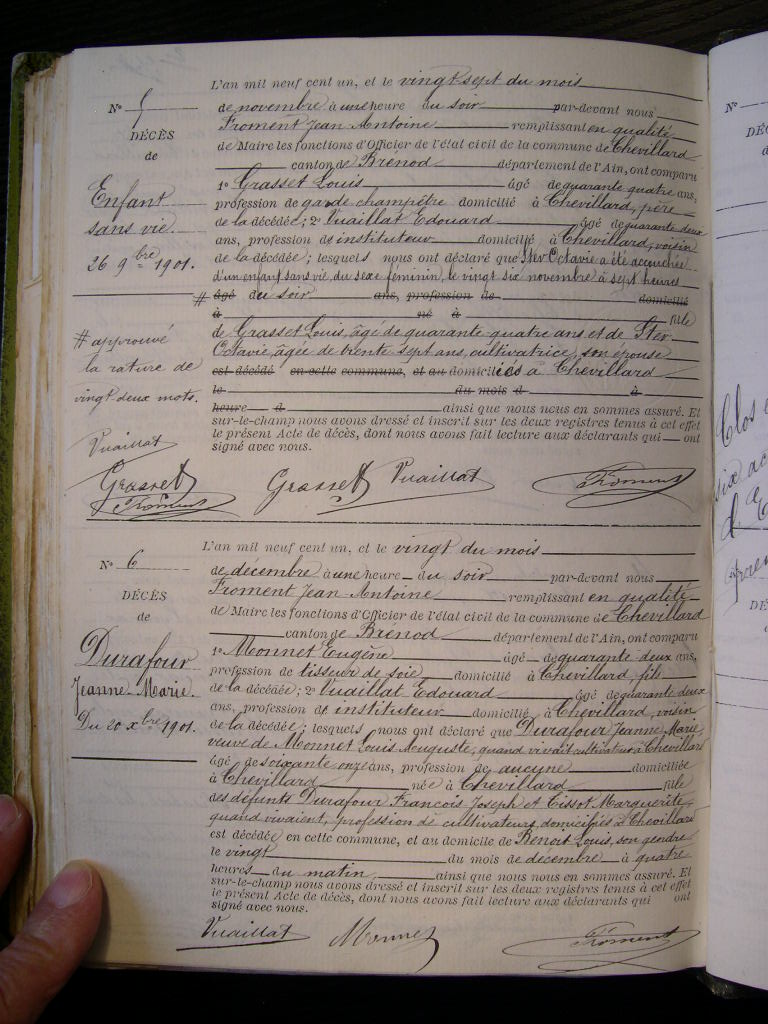 N° 5
DÉCÈS
de
Enfant
sans vie.
26 9bre 1901.
# approuvé
la rature de
vingt deux mots.
Vuaillat
Grasset
Froment
L'an mil neuf cent un, et le vingt sept du mois
de novembre à une heure du soir par-devant nous
Froment Jean-Antoine remplissant en qualité
de Maire les fonctions d'Officier de l'état civil de la commune de Chevillard
canton de Brénod département de l'Ain, ont comparu
1° Grasset Louis âgé de quarante quatre ans,
profession de garde champêtre domicilié à Chevillard, père
de la décédée; 2° Vuaillat Edouard âgé de quarante deux
ans, profession d'instituteur domicilié à Chevillard, voisin
de la décédée; lesquels nous ont déclaré que Ster Octavie a été accouchée
d'un enfant sans vie, du sexe féminin, le vingt six novembre à sept heures
# âgé du soir ans, profession de domicilié
à né à fille
de Grasset Louis, âgé de quarante quatre ans et de Ster
Octavie, âgée de trente sept ans, cultivatrice, son épouse
est décédé en cette commune, et au domiciliés à Chevillard
le du mois d à
heure d ainsi que nous nous en sommes assuré. Et
sur-le-champ nous avons dressé et inscrit sur les deux registres tenus à cet effet
le présent Acte de décès, dont nous avons fait lecture aux déclarants qui ont
signé avec nous.
Grasset Vuaillat Froment
N° 6
DÉCÈS
de
Durafour
Jeanne-Marie.
Du 20 xbre 1901.
L'an mil neuf cent un, et le vingt du mois
de décembre à une heure du soir par-devant nous
Froment Jean-Antoine remplissant en qualité
de Maire les fonctions d'Officier de l'état civil de la commune de Chevillard
canton de Brénod département de l'Ain, ont comparu
1° Monnet Eugène âgé de quarante deux ans,
profession de tisseur de soie domicilié à Chevillard, fils
de la décédée; 2° Vuaillat Edouard âgé de quarante deux
ans, profession d'instituteur domicilié à Chevillard, voisin
de la décédée; lesquels nous ont déclaré que Durafour Jeanne Marie,
veuve de Monnet Louis Auguste, quand vivait cultivateur à Chevillard
âgé de soixante onze ans, profession de aucune domiciliée
à Chevillard née à Chevillard fille
des défunts Durafour François Joseph et Tissot Marguerite,
quand vivaient, profession de cultivateurs, domiciliés à Chevillard
est décédée en cette commune, et au domicile de Benoit Louis, son gendre
le vingt du mois de décembre à quatre
heures du matin ainsi que nous nous en sommes assuré. Et
sur-le-champ nous avons dressé et inscrit sur les deux registres tenus à cet effet
le présent Acte de décès, dont nous avons fait lecture aux déclarants qui ont
signé avec nous.
Vuaillat Monnet Froment
N°
Clos
six